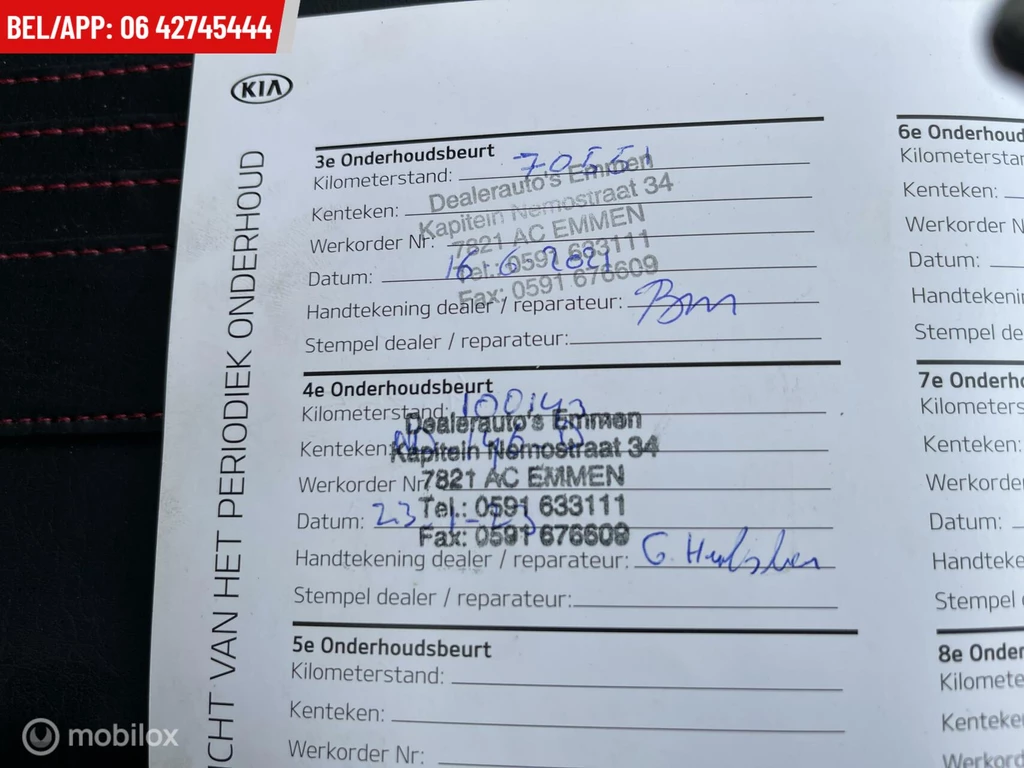 BEL/APP: 06 42745444
KIA
CHT VAN HET PERIODIEK ONDERHOUD
3e Onderhoudsbeurt
Kilometerstand: 70551
Dealerauto's Emmen
Kenteken:
Kapitein Nemostraat 34
Werkorder Nr:
7821 AC EMMEN
Tel.: 0591 633111
Datum: 16 6
Fax: 0591 676609
Handtekening dealer / reparateur:
Stempel dealer / reparateur:
4e Onderhoudsbeurt
Kilometerstand: 100143
Dealerauto's Emmen
Kenteken:
Kapitein Nemostraat 34
Werkorder Nr
7821 AC EMMEN
Tel.: 0591 633111
Datum: 23-1-23
Fax: 0591 676609
Handtekening dealer / reparateur:
Stempel dealer / reparateur:
5e Onderhoudsbeurt
Kilometerstand:
Kenteken:
Werkorder Nr:
6e Onderhoud
Kilometerstan
Kenteken:
Werkorder N
Datum:
Handtekenin
Stempel de
7e Onderho
Kilometers
Kenteken:
Werkorder
Datum:
Handteke
Stempel
8e Onder
Kilomete
Kenteke
Werkord
mobilox